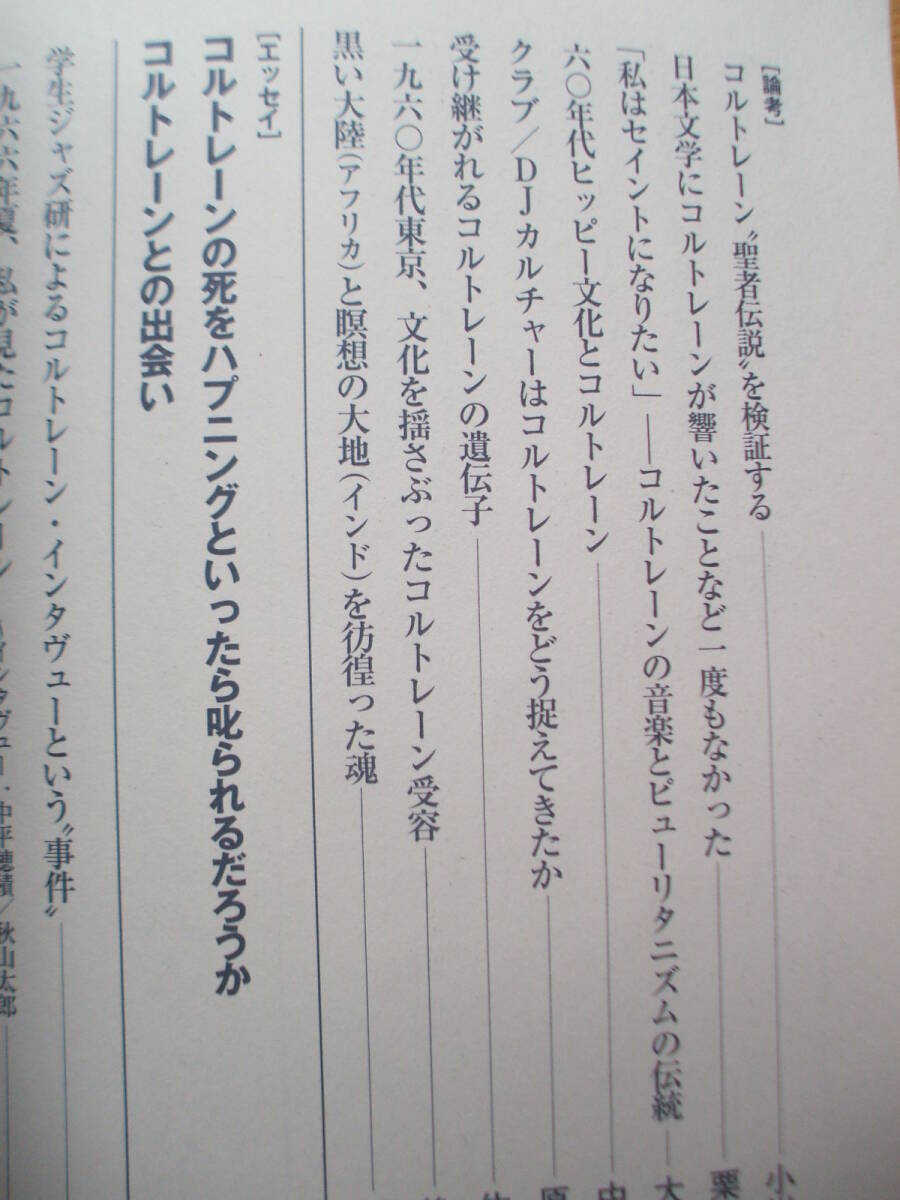 [論考]
コルトレーン〝聖者伝説〟を検証する 小
日本文学にコルトレーンが響いたことなど一度もなかった 栗
「私はセイントになりたい」――コルトレーンの音楽とピューリタニズムの伝統 大
六〇年代ヒッピー文化とコルトレーン 中
クラブ/DJカルチャーはコルトレーンをどう捉えてきたか 原
受け継がれるコルトレーンの遺伝子
一九六〇年代東京、文化を揺さぶったコルトレーン受容
黒い大陸(アフリカ)と瞑想の大地(インド)を彷徨った魂
[エッセイ]
コルトレーンの死をハプニングといったら叱られるだろうか
コルトレーンとの出会い
学生ジャズ研によるコルトレーン・インタヴューという〝事件〟
一九六六年夏、私が見たコルトレーン インタヴュー・中平穂積/秋山太郎